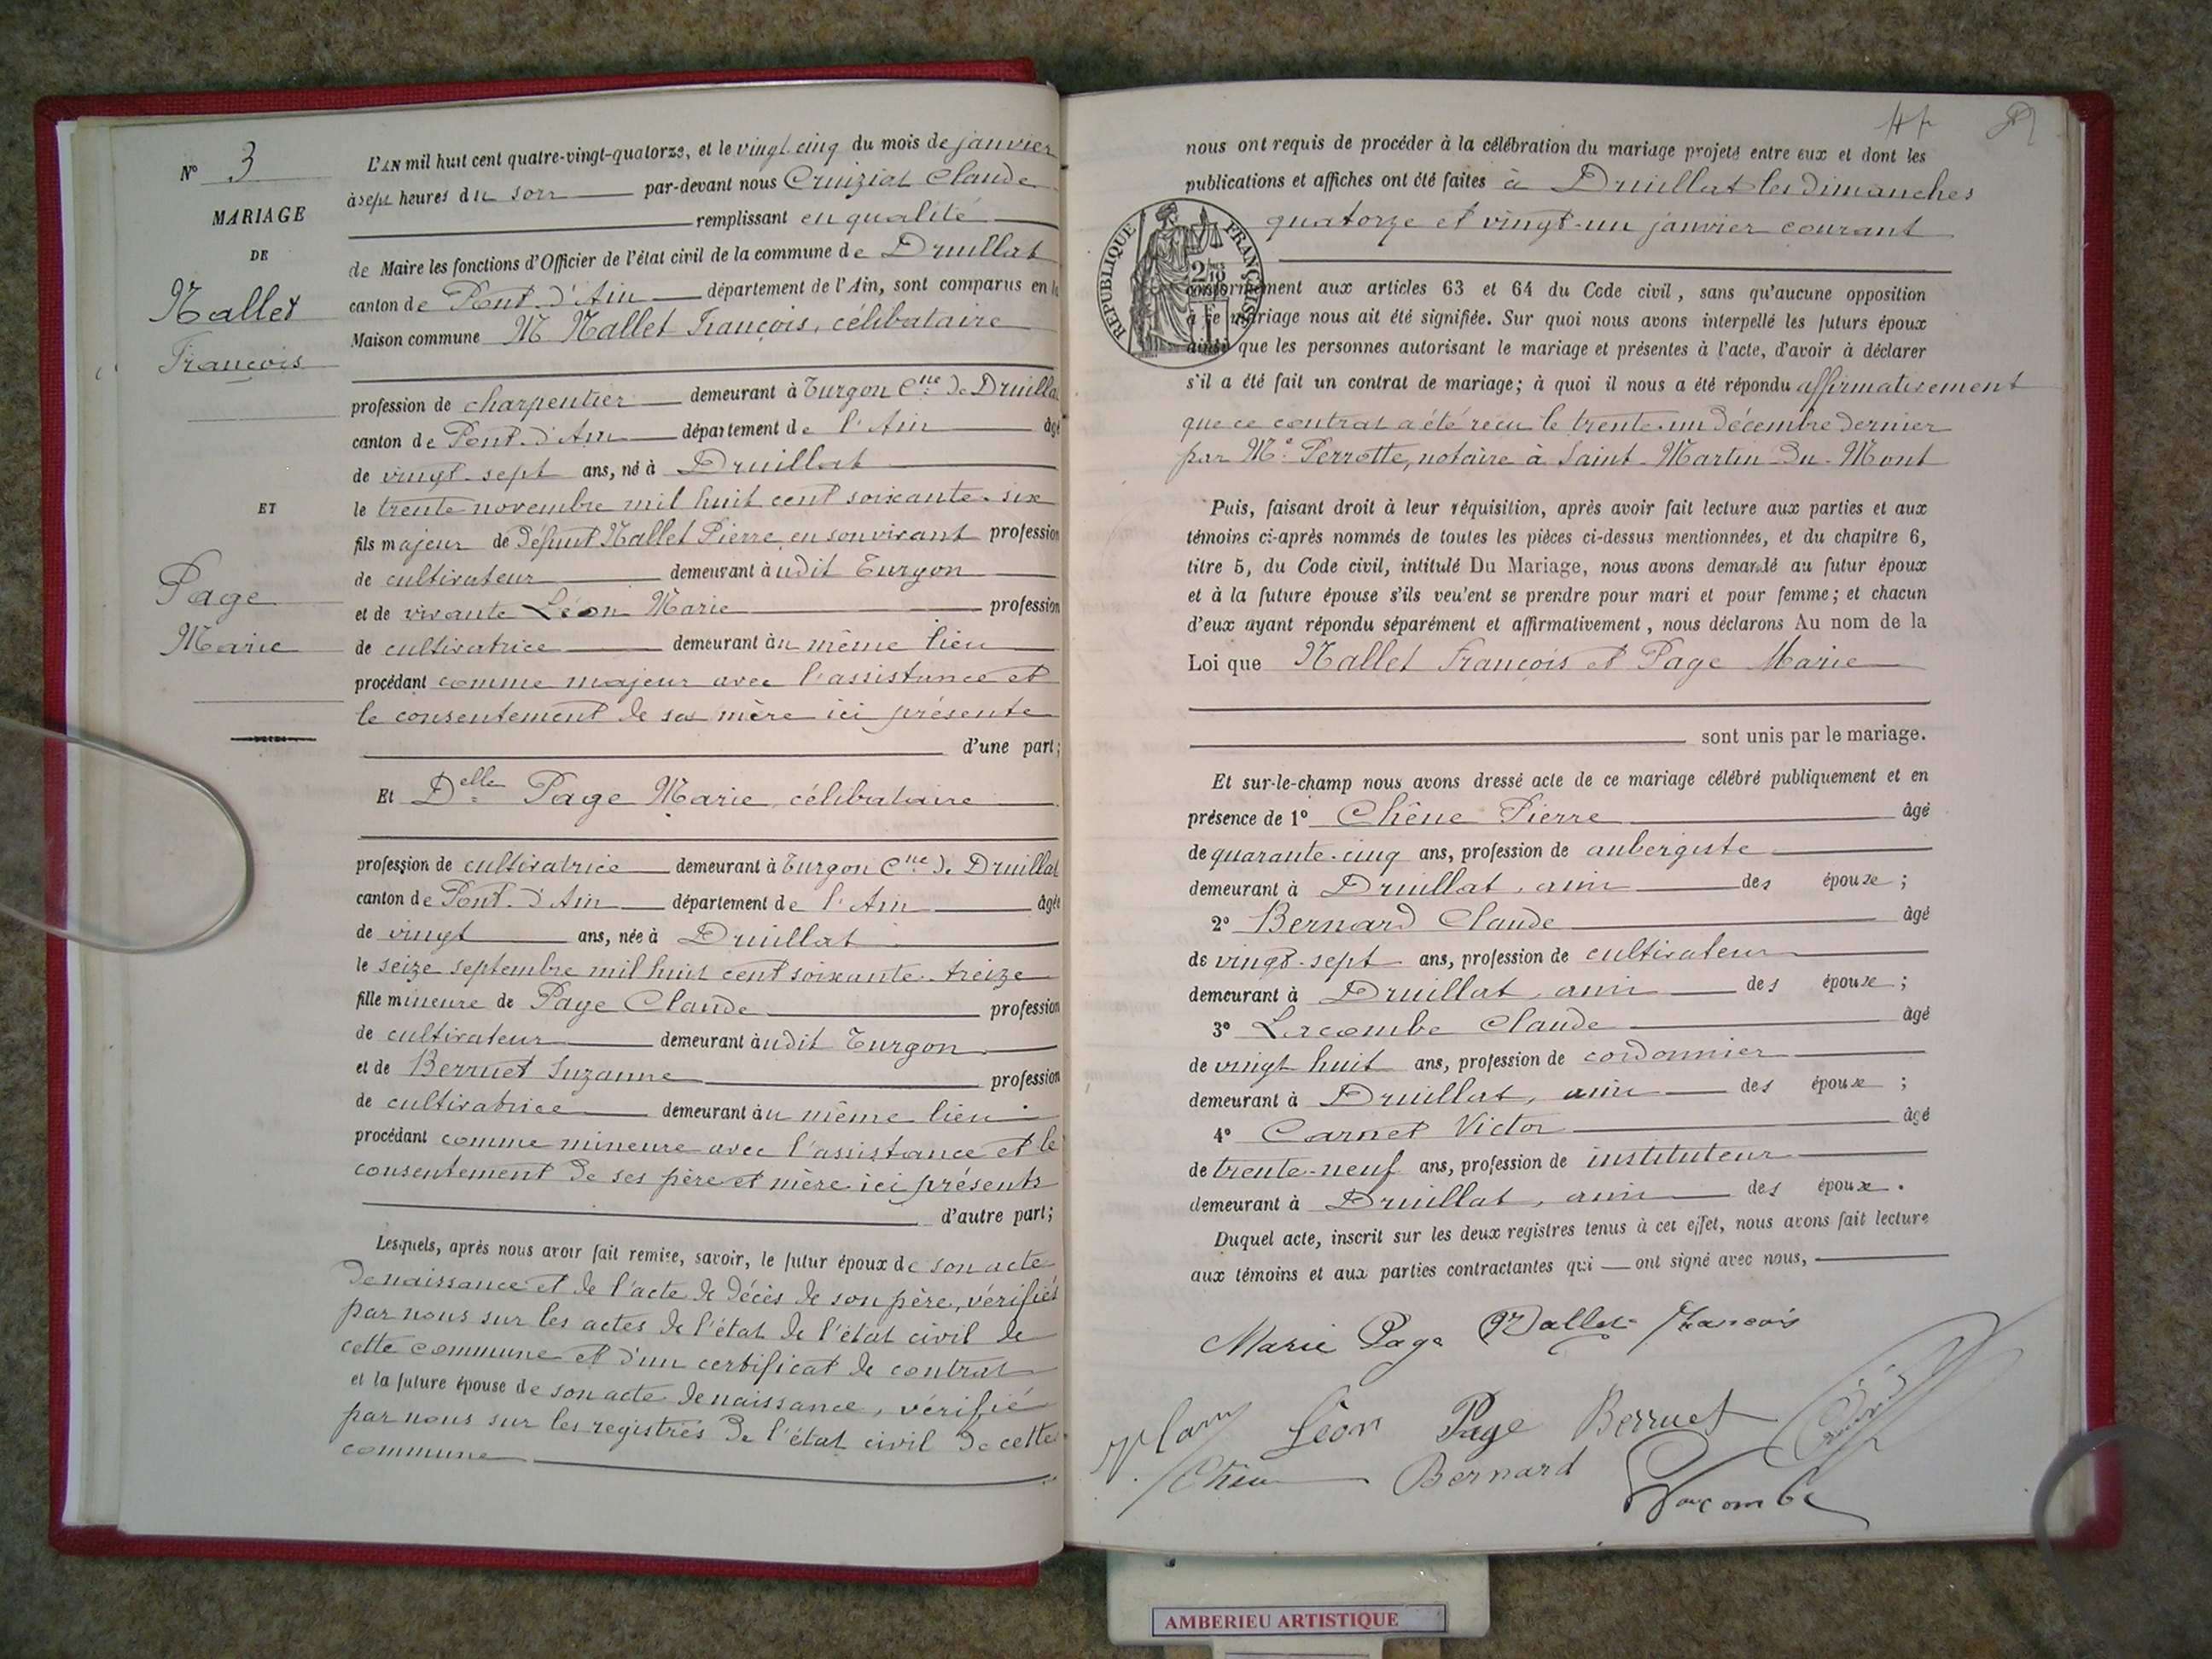 N° 3
MARIAGE
DE
Nallet
François
ET
Page
Marie
L'AN mil huit cent quatre-vingt-quatorze, et le vingt cinq du mois de janvier
à sept heures du soir par-devant nous Cruiziat Claude
remplissant en qualité
de Maire les fonctions d'Officier de l'état civil de la commune de Druillat
canton de Pont-d'Ain département de l'Ain, sont comparus en la
Maison commune M Nallet François, célibataire
profession de charpentier demeurant à Turgon Cne de Druillat
canton de Pont-d'Ain département de l'Ain âgé
de vingt-sept ans, né à Druillat
le trente novembre mil huit cent soixante-six
fils majeur de défunt Nallet Pierre en son vivant profession
de cultivateur demeurant à udit Turgon
et de vivante Léon Marie profession
de cultivatrice demeurant àu même lieu
procédant comme majeur avec l'assistance et
le consentement de sa mère ici présente
d'une part;
Et Delle Page Marie, célibataire
profession de cultivatrice demeurant à Turgon Cne de Druillat
canton de Pont-d'Ain département de l'Ain âgée
de vingt ans, née à Druillat
le seize septembre mil huit cent soixante-treize
fille mineure de Page Claude profession
de cultivateur demeurant àudit Turgon
et de Berruet Suzanne profession
de cultivatrice demeurant àu même lieu
procédant comme mineure avec l'assistance et le
consentement de ses père et mère ici présents
d'autre part;
Lesquels, après nous avoir fait remise, savoir, le futur époux de son acte
de naissance et de l'acte de décès de son père, vérifiés
par nous sur les actes de l'état de l'état civil de
cette commune et d'un certificat de contrat
et la future épouse de son acte de naissance, vérifié
par nous sur les registres de l'état civil de cette
commune
nous ont requis de procéder à la célébration du mariage projeté entre eux et dont les
publications et affiches ont été faites à Druillat les dimanches
quatorze et vingt-un janvier courant
RÉPUBLIQUE FRANÇAISE
conformément aux articles 63 et 64 du Code civil, sans qu'aucune opposition
à ce mariage nous ait été signifiée. Sur quoi nous avons interpellé les futurs époux
ainsi que les personnes autorisant le mariage et présentes à l'acte, d'avoir à déclarer
s'il a été fait un contrat de mariage; à quoi il nous a été répondu affirmativement
que ce contrat a été reçu le trente-un décembre dernier
par Me Perrotte, notaire à Saint-Martin-du-Mont
Puis, faisant droit à leur réquisition, après avoir fait lecture aux parties et aux
témoins ci-après nommés de toutes les pièces ci-dessus mentionnées, et du chapitre 6,
titre 5, du Code civil, intitulé Du Mariage, nous avons demandé au futur époux
et à la future épouse s'ils veulent se prendre pour mari et pour femme; et chacun
d'eux ayant répondu séparément et affirmativement, nous déclarons Au nom de la
Loi que Nallet François et Page Marie
sont unis par le mariage.
Et sur-le-champ nous avons dressé acte de ce mariage célébré publiquement et en
présence de 1° Chêne Pierre âgé
de quarante-cinq ans, profession de aubergiste
demeurant à Druillat, ami des époux;
2° Bernard Claude âgé
de vingt-sept ans, profession de cultivateur
demeurant à Druillat, ami des époux;
3° Lacombe Claude âgé
de vingt huit ans, profession de cordonnier
demeurant à Druillat, ami des époux;
4° Carnet Victor âgé
de trente-neuf ans, profession de instituteur
demeurant à Druillat, ami des époux.
Duquel acte, inscrit sur les deux registres tenus à cet effet, nous avons fait lecture
aux témoins et aux parties contractantes qui ont signé avec nous,
Marie Page Nallet François
Léon Page Berruet
Bernard
Lacombe
AMBERIEU ARTISTIQUE